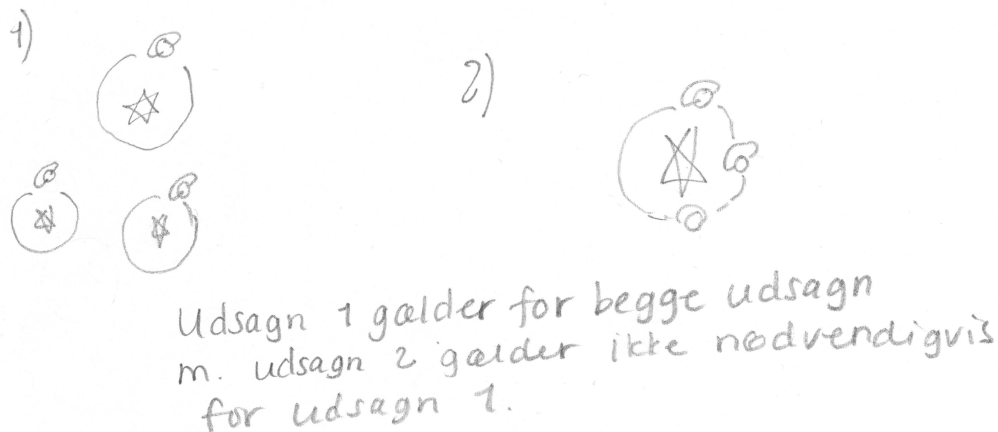 1)
2)
Udsagn 1 gælder for begge udsagn
m. udsagn 2 gælder ikke nødvendigvis
for udsagn 1.